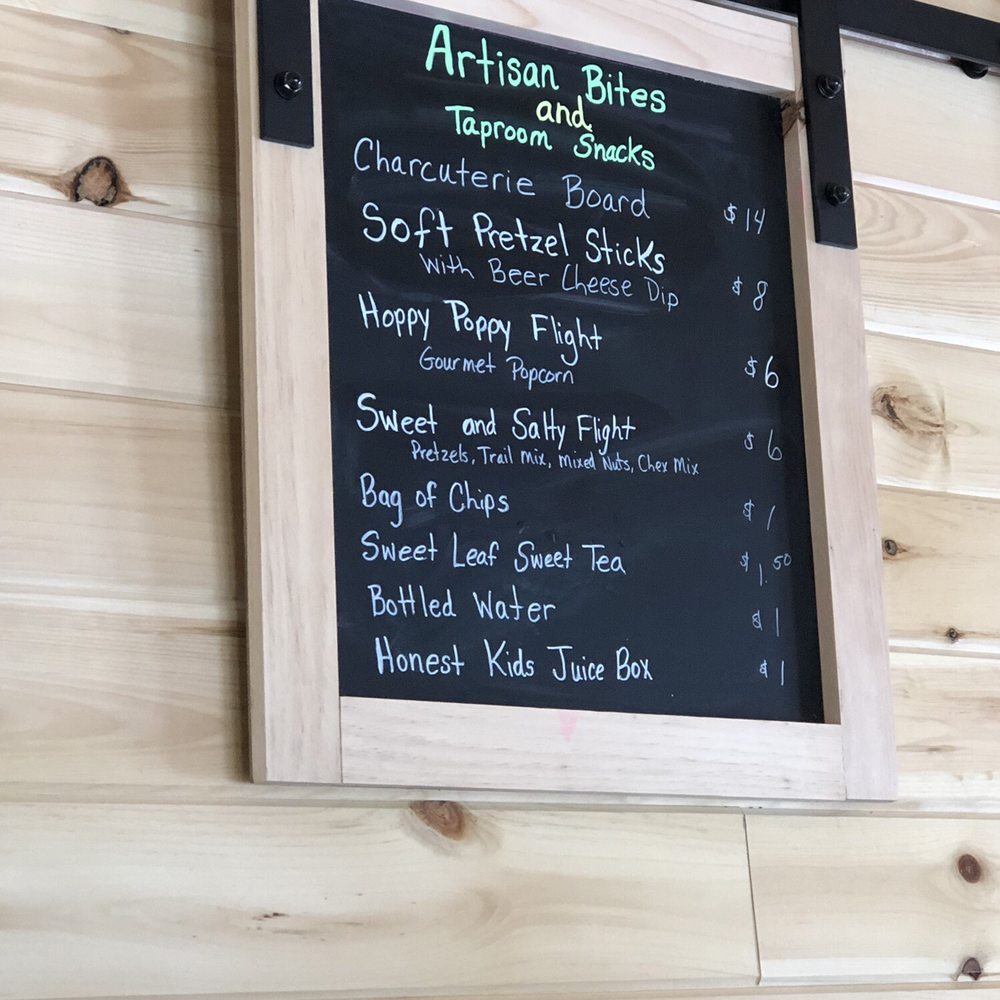 Artisan Bites
and
Taproom Snacks
Charcuterie Board $14
Soft Pretzel Sticks
with Beer Cheese Dip $8
Hoppy Poppy Flight
Gourmet Popcorn $6
Sweet and Salty Flight $6
Pretzels, Trail Mix, Mixed Nuts, Chex Mix
Bag of Chips $1
Sweet Leaf Sweet Tea $1.50
Bottled Water $1
Honest Kids Juice Box $1